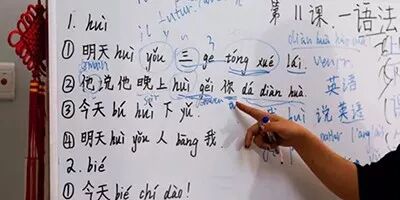 第 11 课. — 语法
1. huì
diàn huà hào mǎ
① 明天 huì yǒu 三 ge tóng xué lái.
② 他说他晚上 huì gěi 你 dǎ diàn huà.
英语
③ 今天 bú huì 下 yǔ.
huì 说 英语
④ 明天 huì yǒu 人 bāng 我.
2. bié
① 今天 bié chí dào!